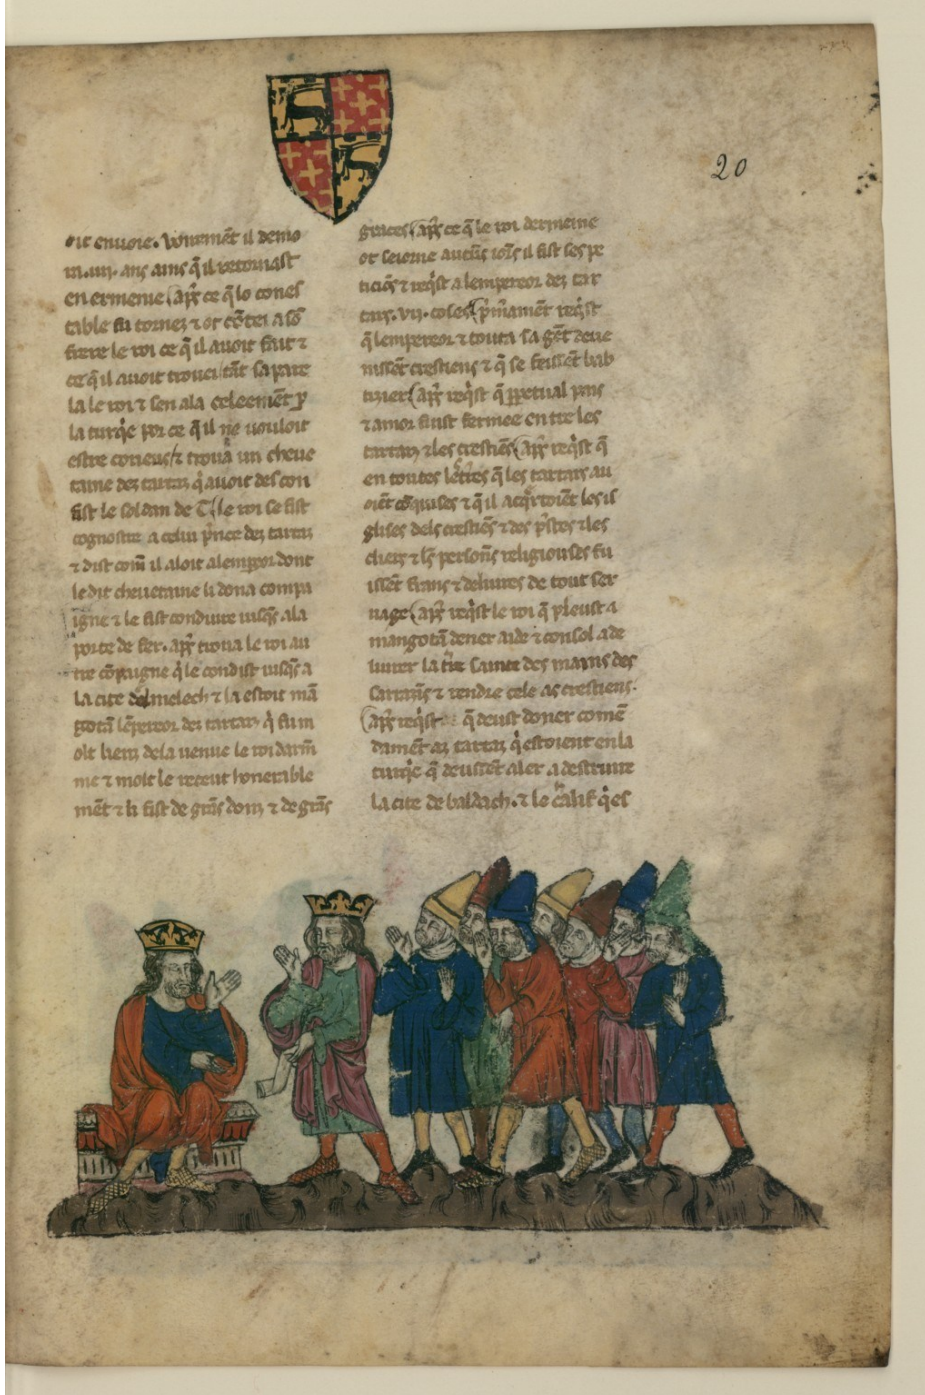 20
oit enuoie. Voirement il demo
ra .iiii. ans ains q̃ il retornast
en ermenie apr̃s ce q̃ lo cones
table fu tornez ⁊ ot cõtei a sõ
frere le roi ce q̃ il auoit fait ⁊
ce q̃ il auoit trouei tãt sapare
la le roi ⁊ sen ala celeemẽt p̱
la turq̇e por ce q̃ il ne uouloit
estre coneus ⁊ troua un cheue
taine dez tartarz q̇ auoit descon
fist le soldan de T. le roi se fist
cognostre a celui p̃nce dez tartarz
⁊ dist com̃ il aloit a lemperor dont
le dit cheuetaine li dona compa
igne ⁊ le fist conduire iusqs̃ a la
porte de fer. apr̃s troua le roi au
tre cõpaigne q̇ le condist iusqs̃ a
la cite delmelech ⁊ la estoit mã
gotã lẽpereor dez tartarz q̇ fu m
olt liez de la uenue le roi darm̃
nie ⁊ molt le receut honerable
mẽt ⁊ li fist de grãs donz ⁊ de grãs
graces apr̃s ce q̃ le roi dermeine
ot seiorne aucũs iors il fist ses pe
ticiõs ⁊ req̇st a lempereor dez tar
tarz .vii. coses p̃m̃ament req̇st
q̃ lempereor ⁊ touta sa gẽt deue
nissẽt crestiens ⁊ q̃ se feissẽt bab
tizier apr̃s req̇st q̃ p̱petual pais
⁊ amor fust fermee entre les
tartarz ⁊ les crestiẽs apr̃s req̇st q̃
en toutes les t̃res q̃ les tartars au
oiẽt cõquises ⁊ q̃ il acq̇rroiẽt les il
glises dels crestiẽs ⁊ des p̃stes ⁊ les
clierz ⁊ ls̃ persons̃ religiouses fu
issẽt frans ⁊ deliures de tout ser
uage apr̃s req̇st le roi q̃ pleust a
mangotã doner aide ⁊ consol a de
liurer la t̃re sainte des mayns des
sarazĩs ⁊ rendre cele as crestiens.
apr̃s req̇st q̃ deust doner comẽ
damẽt az tartarz q̇ estoient en la
turq̇e q̃ deussẽt aler a destruire
la cite de baldach. ⁊ le calif q̇ es